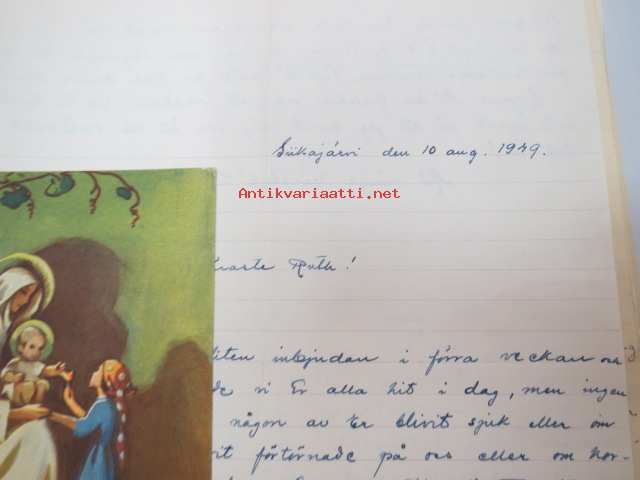 Siikajärvi den 10 aug. 1949.
Antikvariaatti.net
Ruth!
inbjudan i förra veckan
vi Er alla hit i dag, men ingen
någon av Er blivit sjuk eller om
förtörnade på oss eller om kor-